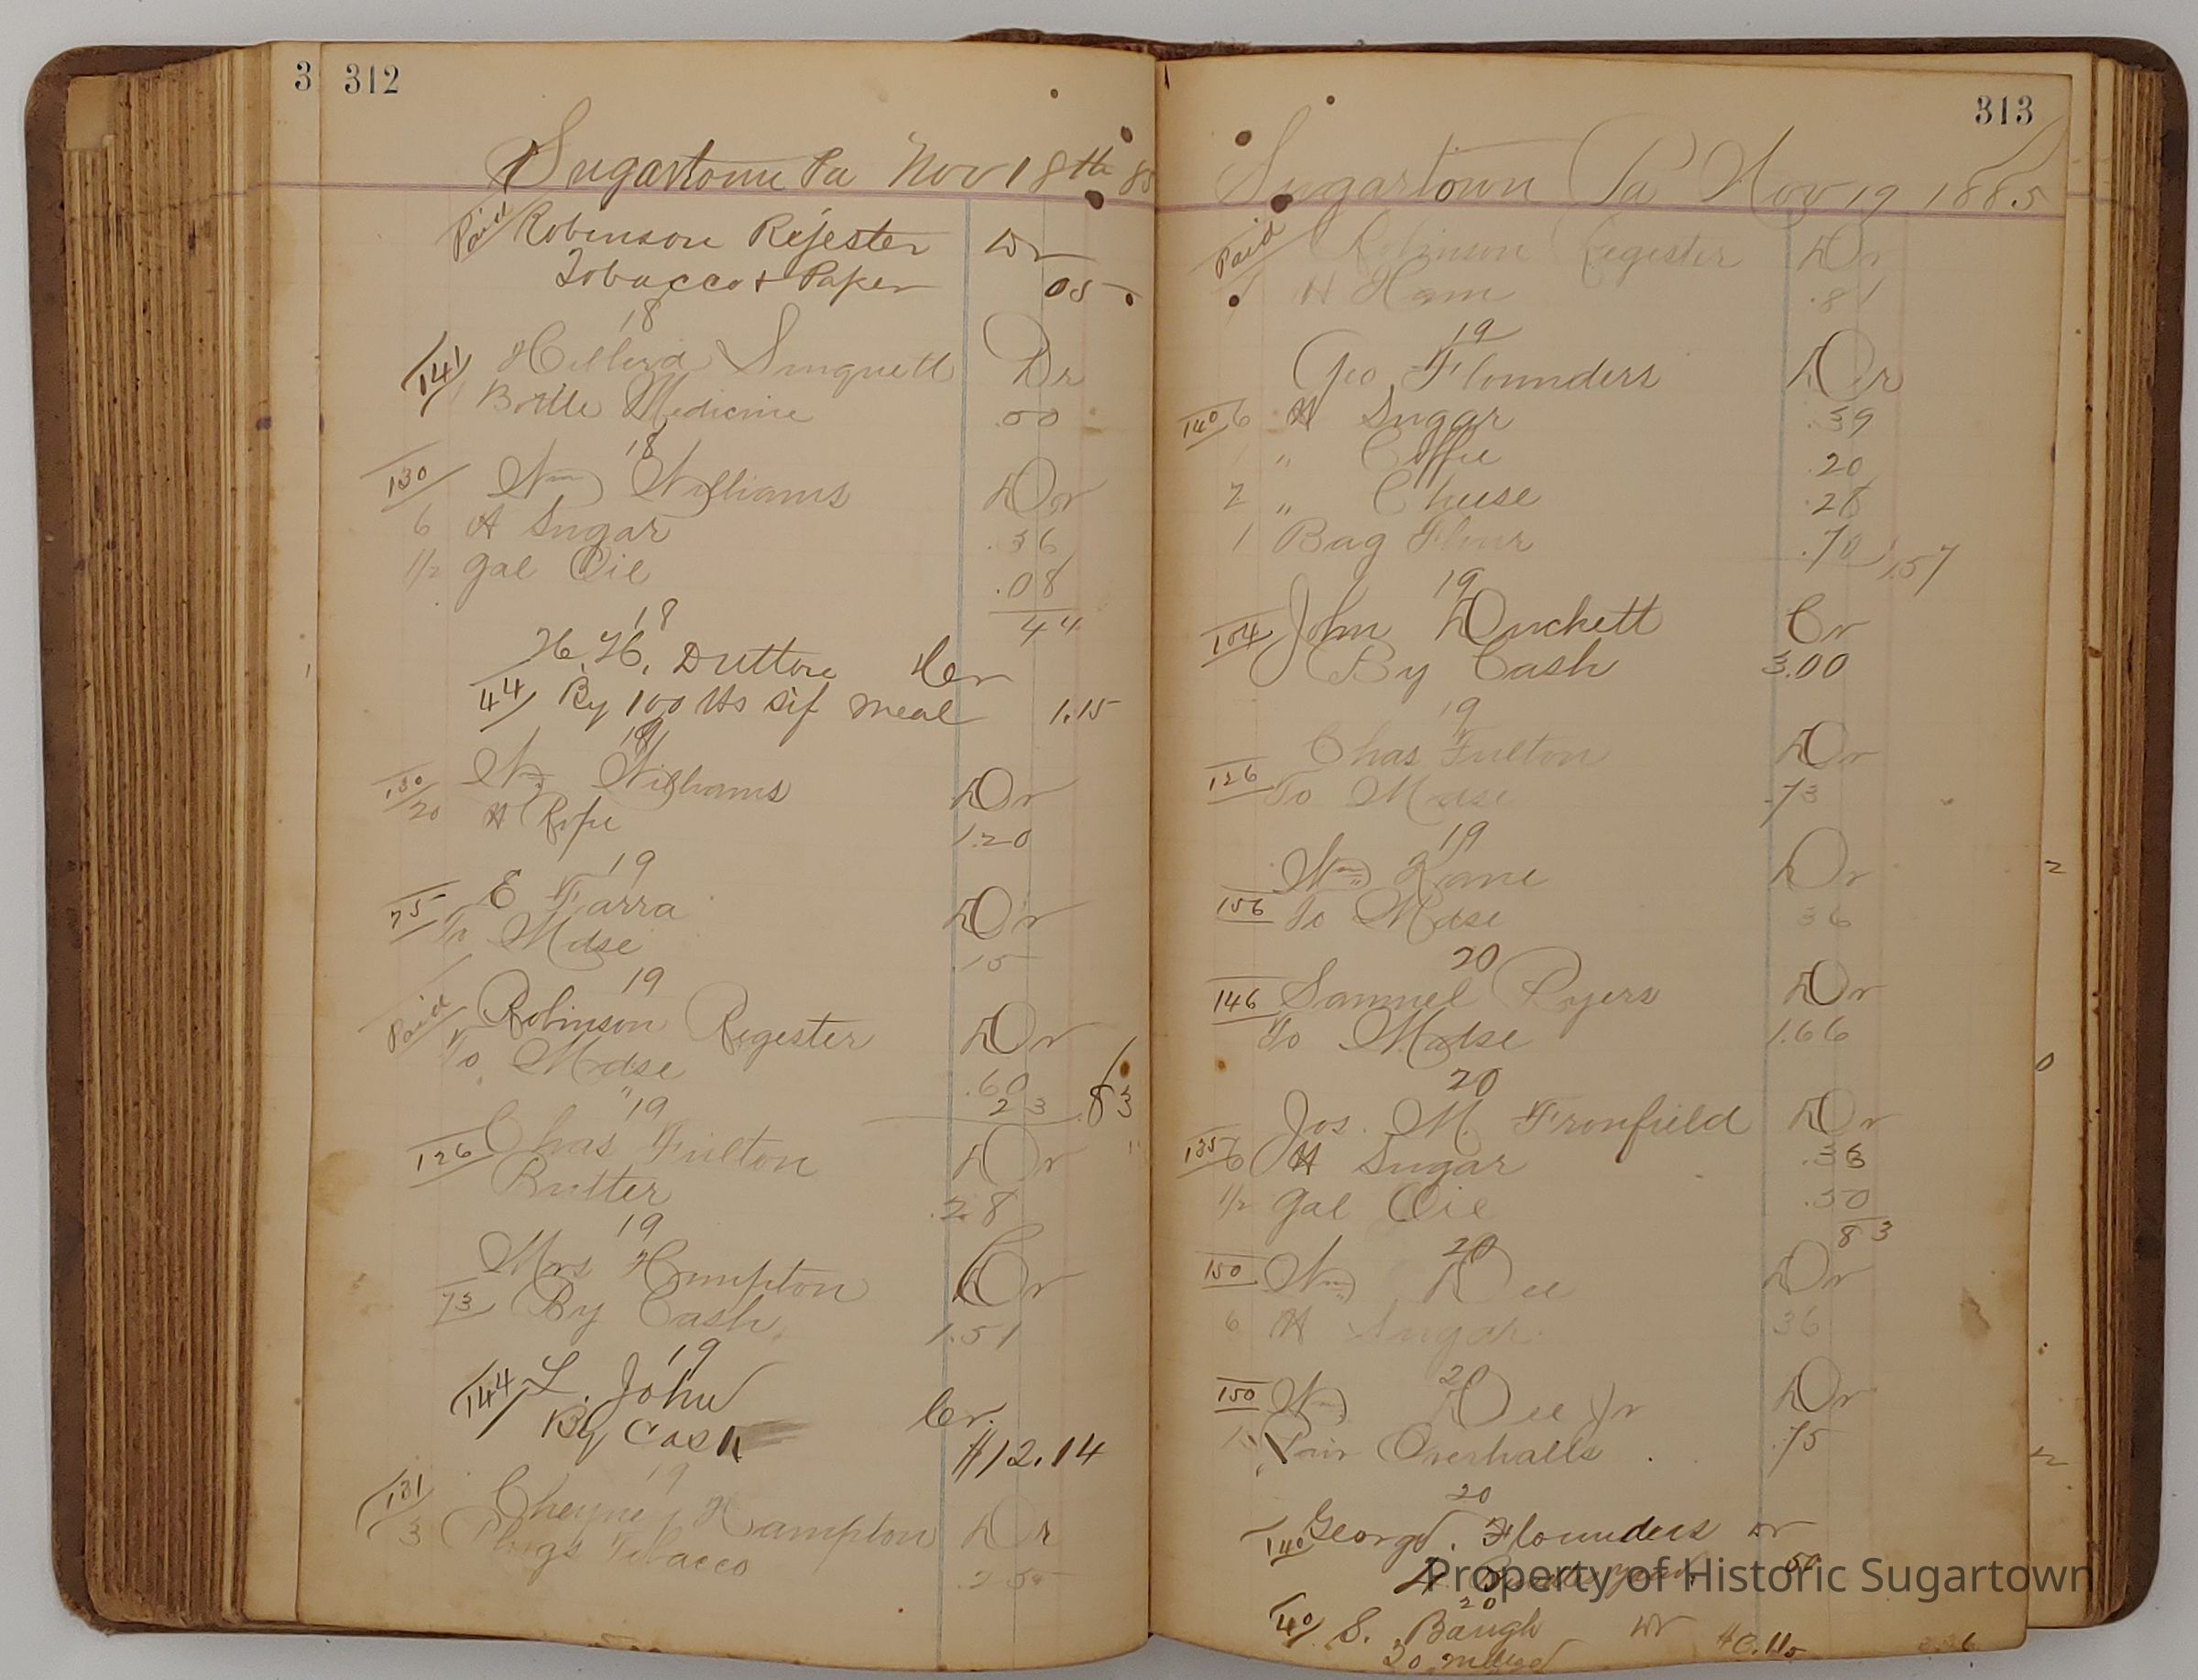 3 312
Sugartown Pa Nov 18th 85
Paid Robinson Rejester Dr
Tobacco & Paper 05
18
141 Dr
Bottle Medicine .50
18
130 Wm Williams Dr
6 # Sugar .36
1/2 gal Oil .08
44
18
H. H. Dutton Cr
44 By 100 lbs Sif meal 1.15
18
130 Wm Williams Dr
20 # Rope 1.20
19
75 E Farra Dr
To Mdse 15
19
Paid Robinson Register Dr
To Mdse .60
23 .83
" 19
126 Chas Fulton Dr
Butter .28
19
Mrs Hampton Cr
73 By Cash 1.51
19
144 L. John Cr.
By Cash $12.14
19
131 Cheyney Hampton Dr
3 Plugs Tobacco .25
313
Sugartown Pa Nov 19 1885
Paid Robinson Register Dr
# Ham .81
19
Geo Flounders Dr
140 6 # Sugar .39
1 " Coffee .20
2 " Cheese .28
1 Bag Flour .70 1.57
19
104 John Duckett Cr
By Cash 3.00
19
Chas Fulton Dr
126 To Mdse .73
19
Wm Kane Dr
156 To Mdse 36
20
146 Samuel Pyers Dr
To Mdse 1.66
20
Jos. M. Fronfield Dr
135 6 # Sugar .33
1/2 gal Oil .50
83
20
150 Wm Dee Dr
6 # Sugar 36
20
150 Wm Dee Jr Dr
1 Pair Overhalls .75
20
140 George Flounders Dr
50
20
40 S. Baugh Dr
Property of Historic Sugartown